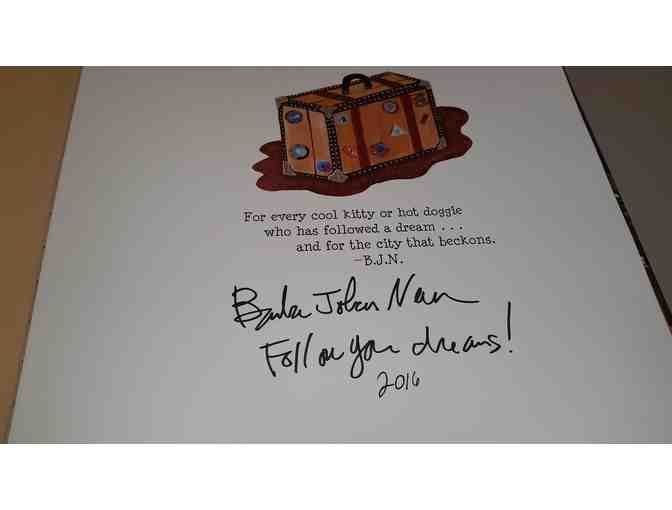 For every cool kitty or hot doggie
who has followed a dream . . .
and for the city that beckons.
—B.J.N.
Barbara Johansen Newman
Follow your dreams!
2016